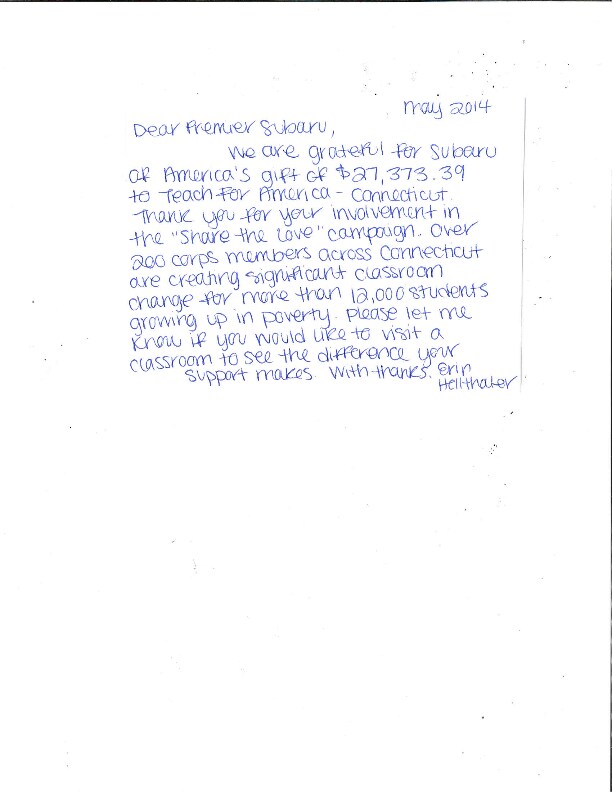 May 2014
Dear Premier Subaru,
We are grateful for Subaru
of America's gift of $27,373.39
to Teach For America - Connecticut.
Thank you for your involvement in
the "Share the Love" campaign. Over
200 corps members across Connecticut
are creating significant classroom
change for more than 12,000 students
growing up in poverty. Please let me
know if you would like to visit a
classroom to see the difference your
support makes. With thanks. Erin
Hellthaler